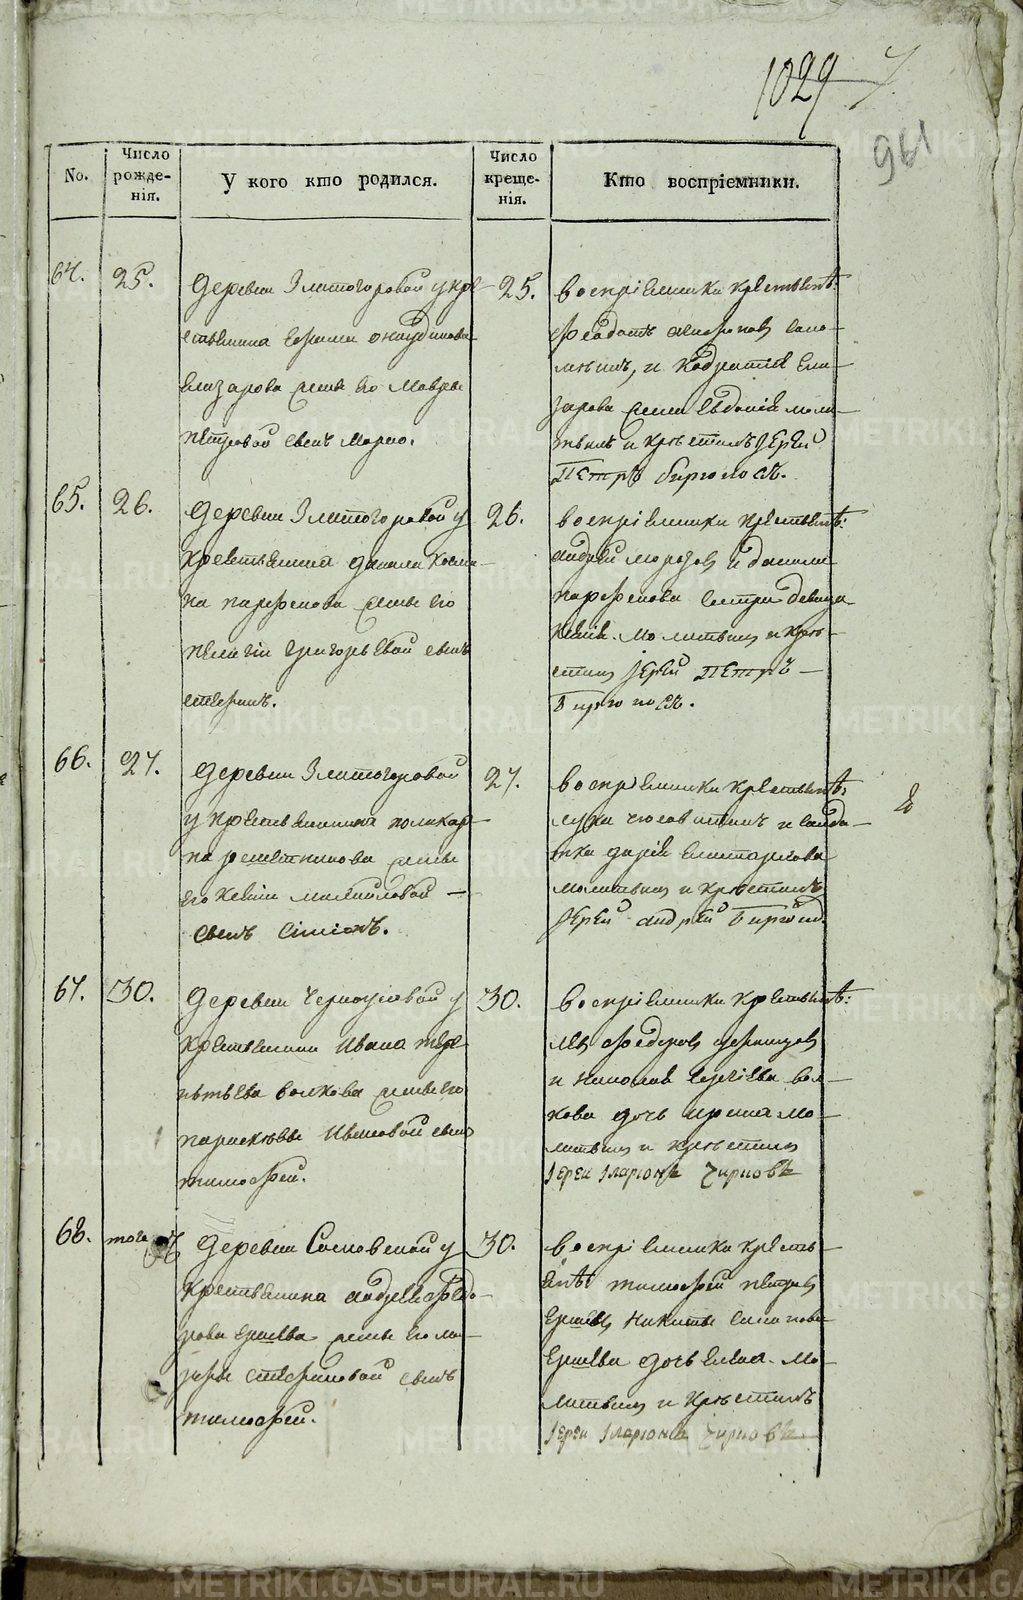 1029
961
No.
Число рожде- нія.
У кого кто родился.
Число креще- нія.
Кто воспріемники.
64.
25.
деревни Златогоровой у кре-
стьянина
Елизарова жены его Мавры
петровой сынъ Марко.
25.
воспріемники крестьянѣ:
и Кодратія Ели-
зарова Евдокія моли-
твилъ и крестилъ Іерей
Петръ Бирюковъ.
65.
26.
деревни Златогоровой у
крестьянина данила Косми-
на парфенова жены его
пелагіи григорьевой сынъ
стефанъ.
26.
воспріемники крестьянѣ:
андрей морозов и данила
парфенова сестра девица
молитвил и кре-
стил Іерей Петръ
Бирюковъ.
66.
27.
деревни Златогоровой
у крестьянина поликар-
па решетникова жены
его Ксеніи михайловой
сынъ Симеонъ.
27.
воспріемники крестьянѣ:
лука и солда-
тка дарія
молитвил и крестилъ
Іерей андрей Бирюков.
67.
30.
деревни Черноусовой у
крестьянина Ивана тере-
нтьева волкова жены его
парасковьи Ивановой сынъ
тимофей.
30.
воспріемники крестьянѣ:
лев федоров
и николая сергіева вол-
кова дочь ирина мо-
литвил и крестил
Іереи Іларіонъ Чирковъ
68.
тогожъ
деревни Сосновской у
крестьянина андрея федо-
рова Ершева жены его ма-
рфы стефановой сынъ
тимофей.
30.
воспріемники кресть-
янѣ тимофей петров
Ершев никиты
Ершева дочь мо-
литвил и крестилъ
Іереи Іларіонъ Чирковъ
METRIKI.GASO-URAL.RU